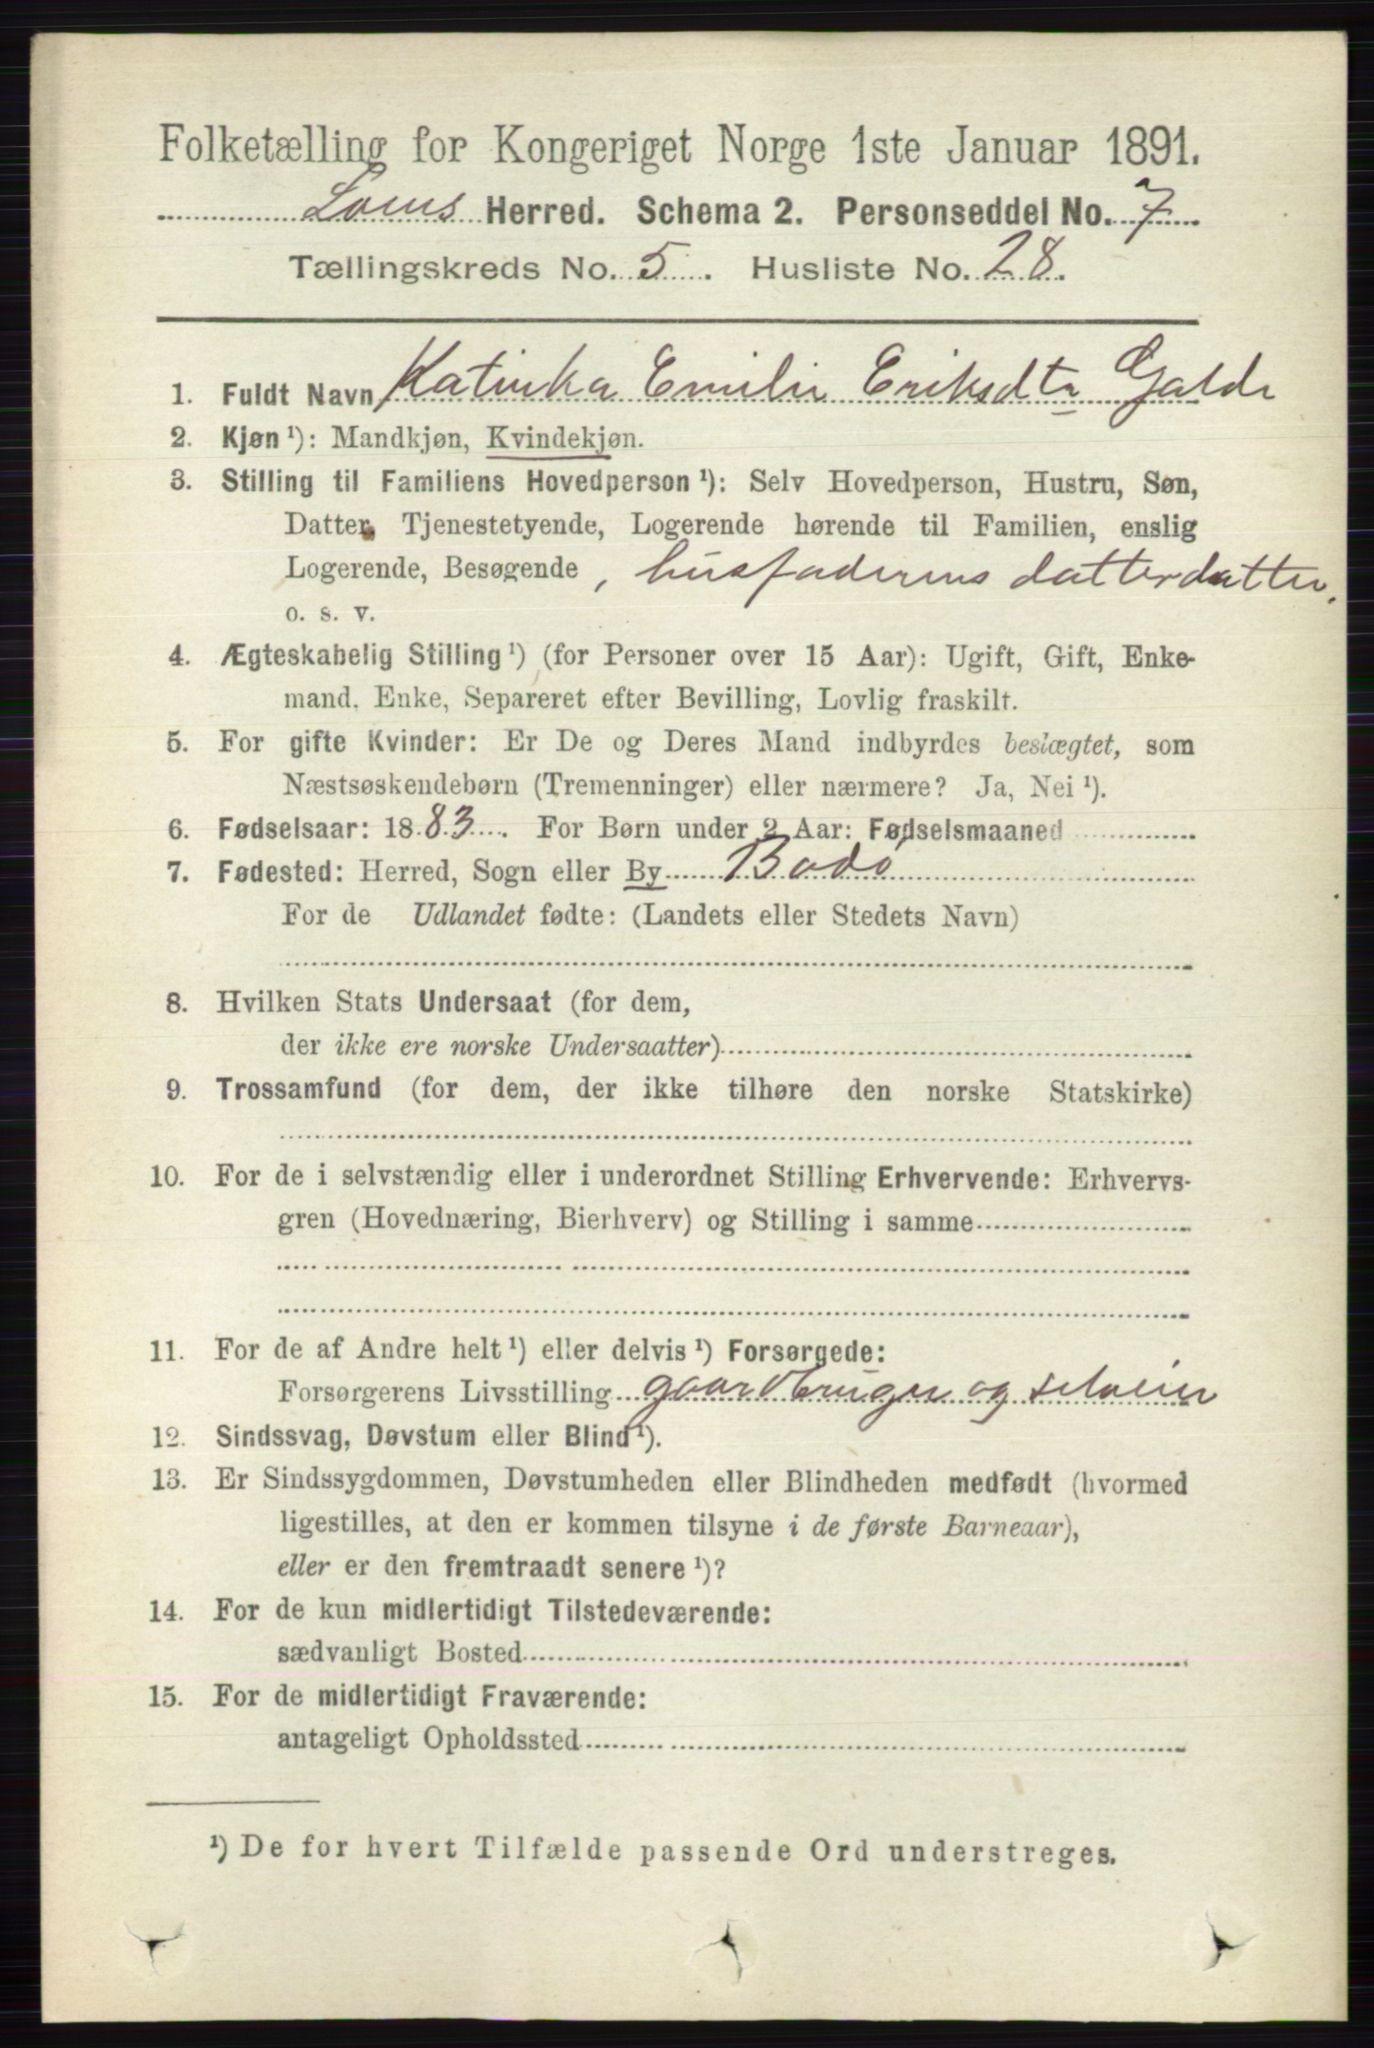 Folketælling for Kongeriget Norge 1ste Januar 1891.
Loms Herred. Schema 2. Personseddel No. 7
Tællingskreds No. 5. Husliste No. 28.
1. Fuldt Navn Katinka Emilie Eriksdtr Galde
2. Kjøn ¹): Mandkjøn, Kvindekjøn.
3. Stilling til Familiens Hovedperson ¹): Selv Hovedperson, Hustru, Søn,
Datter, Tjenestetyende, Logerende hørende til Familien, enslig
Logerende, Besøgende, husfaderens datterdatter.
o. s. v.
4. Ægteskabelig Stilling ¹) (for Personer over 15 Aar): Ugift, Gift, Enke-
mand, Enke, Separeret efter Bevilling, Lovlig fraskilt.
5. For gifte Kvinder: Er De og Deres Mand indbyrdes beslægtet, som
Næstsøskendebørn (Tremenninger) eller nærmere? Ja, Nei ¹).
6. Fødselsaar: 1883. For Børn under 2 Aar: Fødselsmaaned
7. Fødested: Herred, Sogn eller By Bodø
For de Udlandet fødte: (Landets eller Stedets Navn)
8. Hvilken Stats Undersaat (for dem,
der ikke ere norske Undersaatter)
9. Trossamfund (for dem, der ikke tilhøre den norske Statskirke)
10. For de i selvstændig eller i underordnet Stilling Erhvervende: Erhvervs-
gren (Hovednæring, Bierhverv) og Stilling i samme
11. For de af Andre helt ¹) eller delvis ¹) Forsørgede:
Forsørgerens Livsstilling gaardbruger og selveier
12. Sindssvag, Døvstum eller Blind ¹).
13. Er Sindssygdommen, Døvstumheden eller Blindheden medfødt (hvormed
ligestilles, at den er kommen tilsyne i de første Barneaar),
eller er den fremtraadt senere ¹)?
14. For de kun midlertidigt Tilstedeværende:
sædvanligt Bosted
15. For de midlertidigt Fraværende:
antageligt Opholdssted
¹) De for hvert Tilfælde passende Ord understreges.